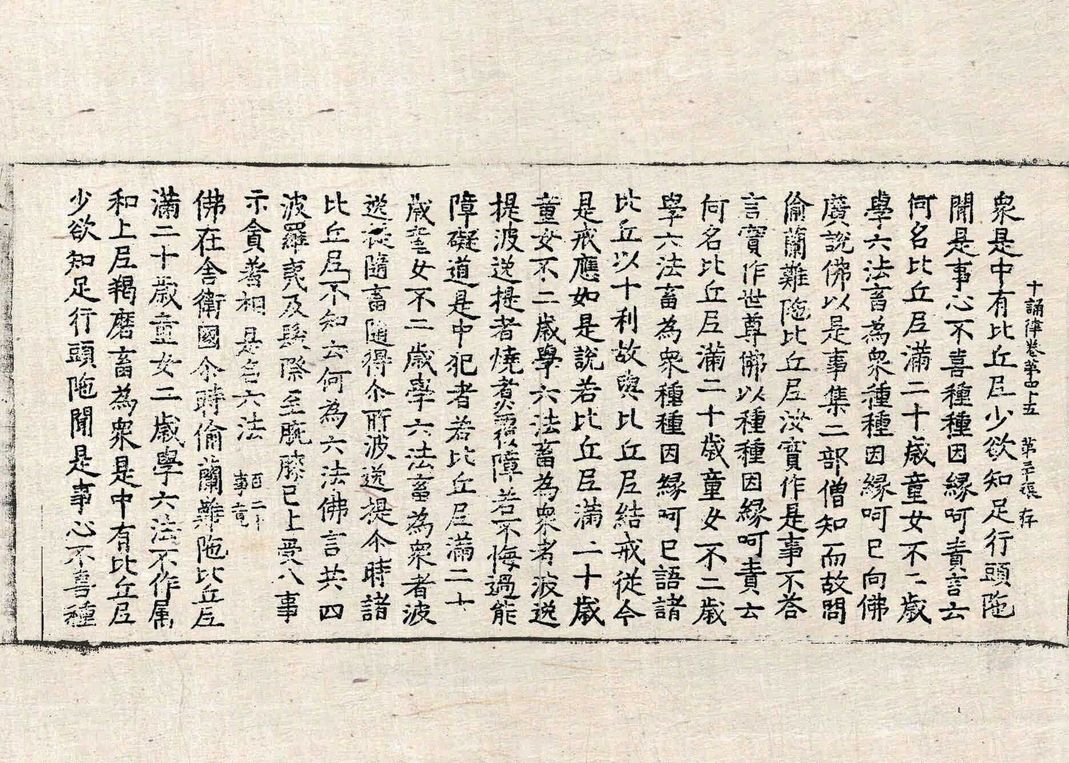 十誦律卷第四十五 第五張 存
衆是中有比丘尼少欲知足行頭陁
聞是事心不喜種種因緣呵責言云
何名比丘尼滿二十歲童女不二歲
學六法畜為衆種種因緣呵已向佛
廣說佛以是事集二部僧知而故問
偷蘭難陁比丘尼汝實作是事不荅
言實作世尊佛以種種因緣呵責云
何名比丘尼滿二十歲童女不二歲
學六法畜為衆種種因緣呵已語諸
比丘以十利故與比丘尼結戒從今
是戒應如是說若比丘尼滿二十歲
童女不二歲學六法畜為衆者波逸
提波逸提者燒煮覆障若不悔過能
障礙道是中犯者若比丘尼滿二十
歲童女不二歲學六法畜為衆者波
逸提隨畜隨得尒所波逸提尒時諸
比丘尼不知云何為六法佛言共四
波羅夷及髮際至腕膝已上受八事
示貪著相是名六法 百二十事竟
佛在舍衛國尒時偷蘭難陁比丘尼
滿二十歲童女二歲學六法不作屬
和上尼羯磨畜為衆是中有比丘尼
少欲知足行頭陁聞是事心不喜種